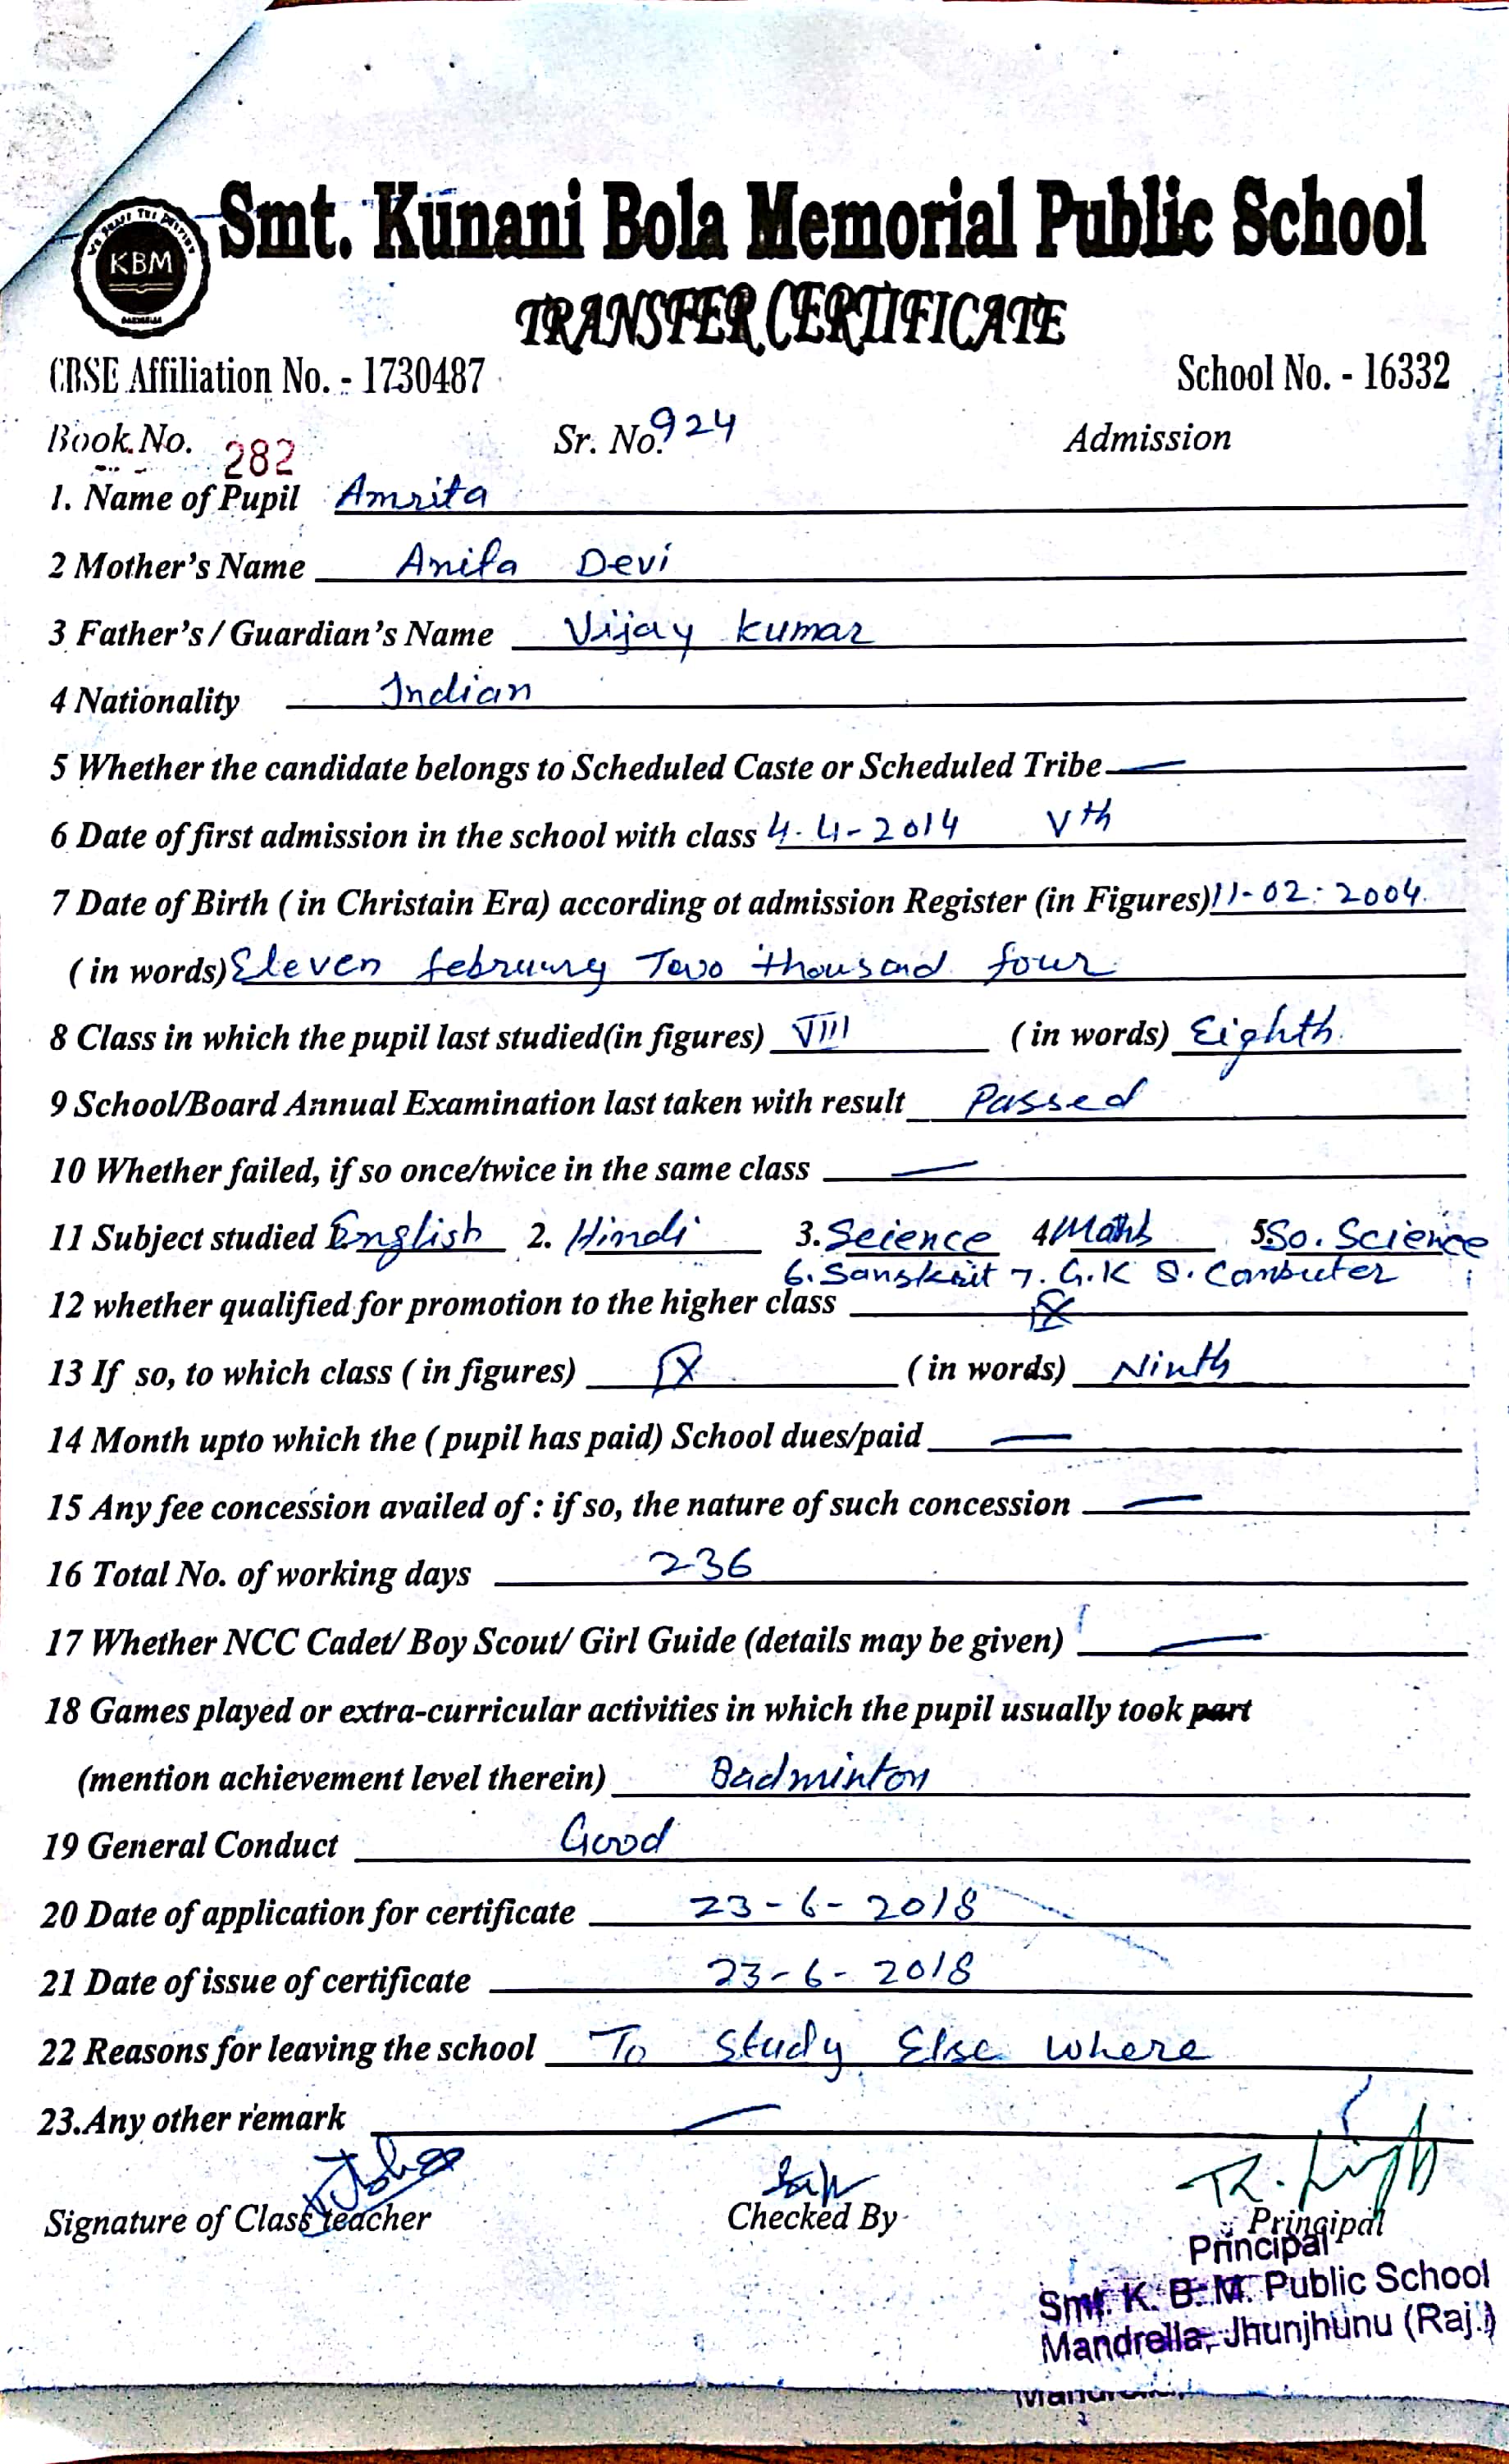 KBM
Smt. Kunani Bola Memorial Public School
TRANSFER CERTIFICATE
CBSE Affiliation No. - 1730487 School No. - 16332
Book No. 282 Sr. No. 924 Admission
1. Name of Pupil Amrita
2 Mother's Name Anita Devi
3 Father's / Guardian's Name Vijay kumar
4 Nationality Indian
5 Whether the candidate belongs to Scheduled Caste or Scheduled Tribe —
6 Date of first admission in the school with class 4-4-2014 Vth
7 Date of Birth ( in Christain Era) according ot admission Register (in Figures) 11-02-2004
( in words) Eleven february Two thousand four
8 Class in which the pupil last studied(in figures) VIII ( in words) Eighth
9 School/Board Annual Examination last taken with result Passed
10 Whether failed, if so once/twice in the same class —
11 Subject studied 1. English 2. Hindi 3. Science 4 Maths 5. So. Science
6. Sanskrit 7. G.K 8. Computer
12 whether qualified for promotion to the higher class IX
13 If so, to which class ( in figures) IX ( in words) Ninth
14 Month upto which the ( pupil has paid) School dues/paid —
15 Any fee concession availed of : if so, the nature of such concession —
16 Total No. of working days 236
17 Whether NCC Cadet/ Boy Scout/ Girl Guide (details may be given) —
18 Games played or extra-curricular activities in which the pupil usually took part
(mention achievement level therein) Badminton
19 General Conduct Good
20 Date of application for certificate 23-6-2018
21 Date of issue of certificate 23-6-2018
22 Reasons for leaving the school To Study Else where
23. Any other remark —
Signature of Class teacher Checked By Principal
Principal
Smt. K. B. M. Public School
Mandrella, Jhunjhunu (Raj.)